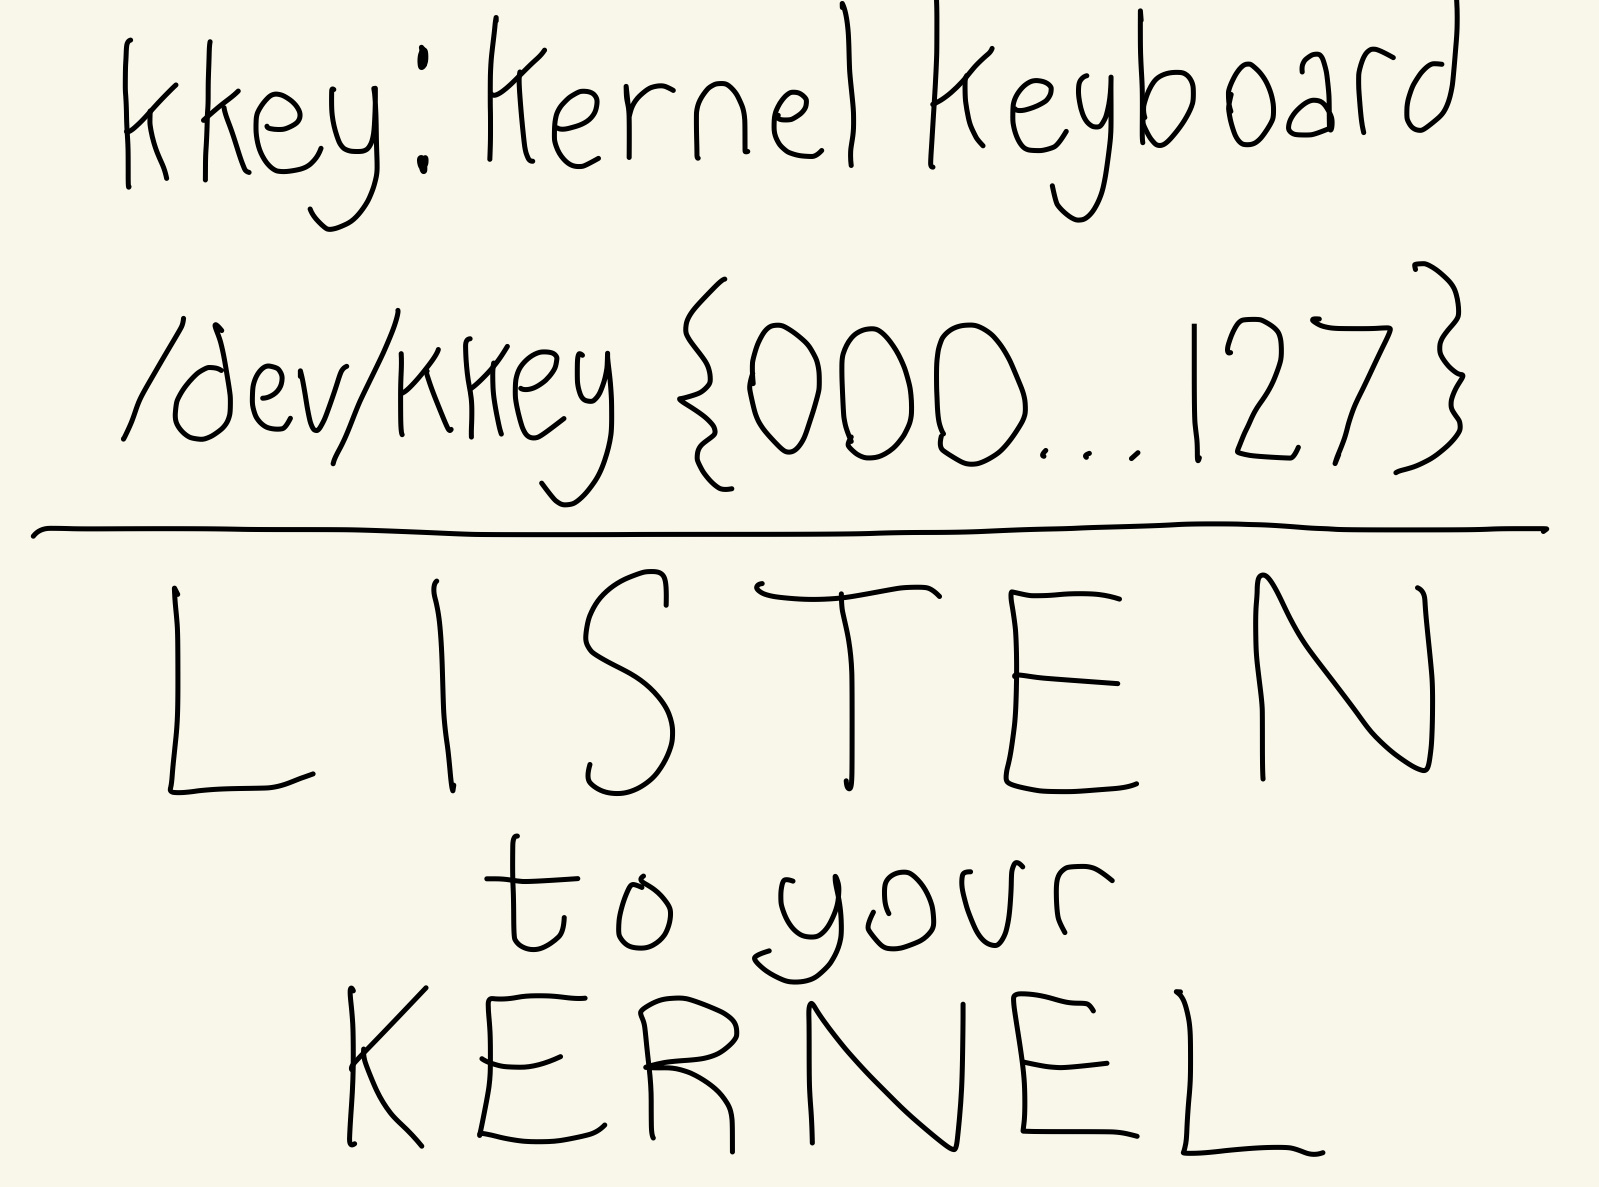 kkey: Kernel Keyboard
/dev/kkey{000...127}
LISTEN
to your
KERNEL